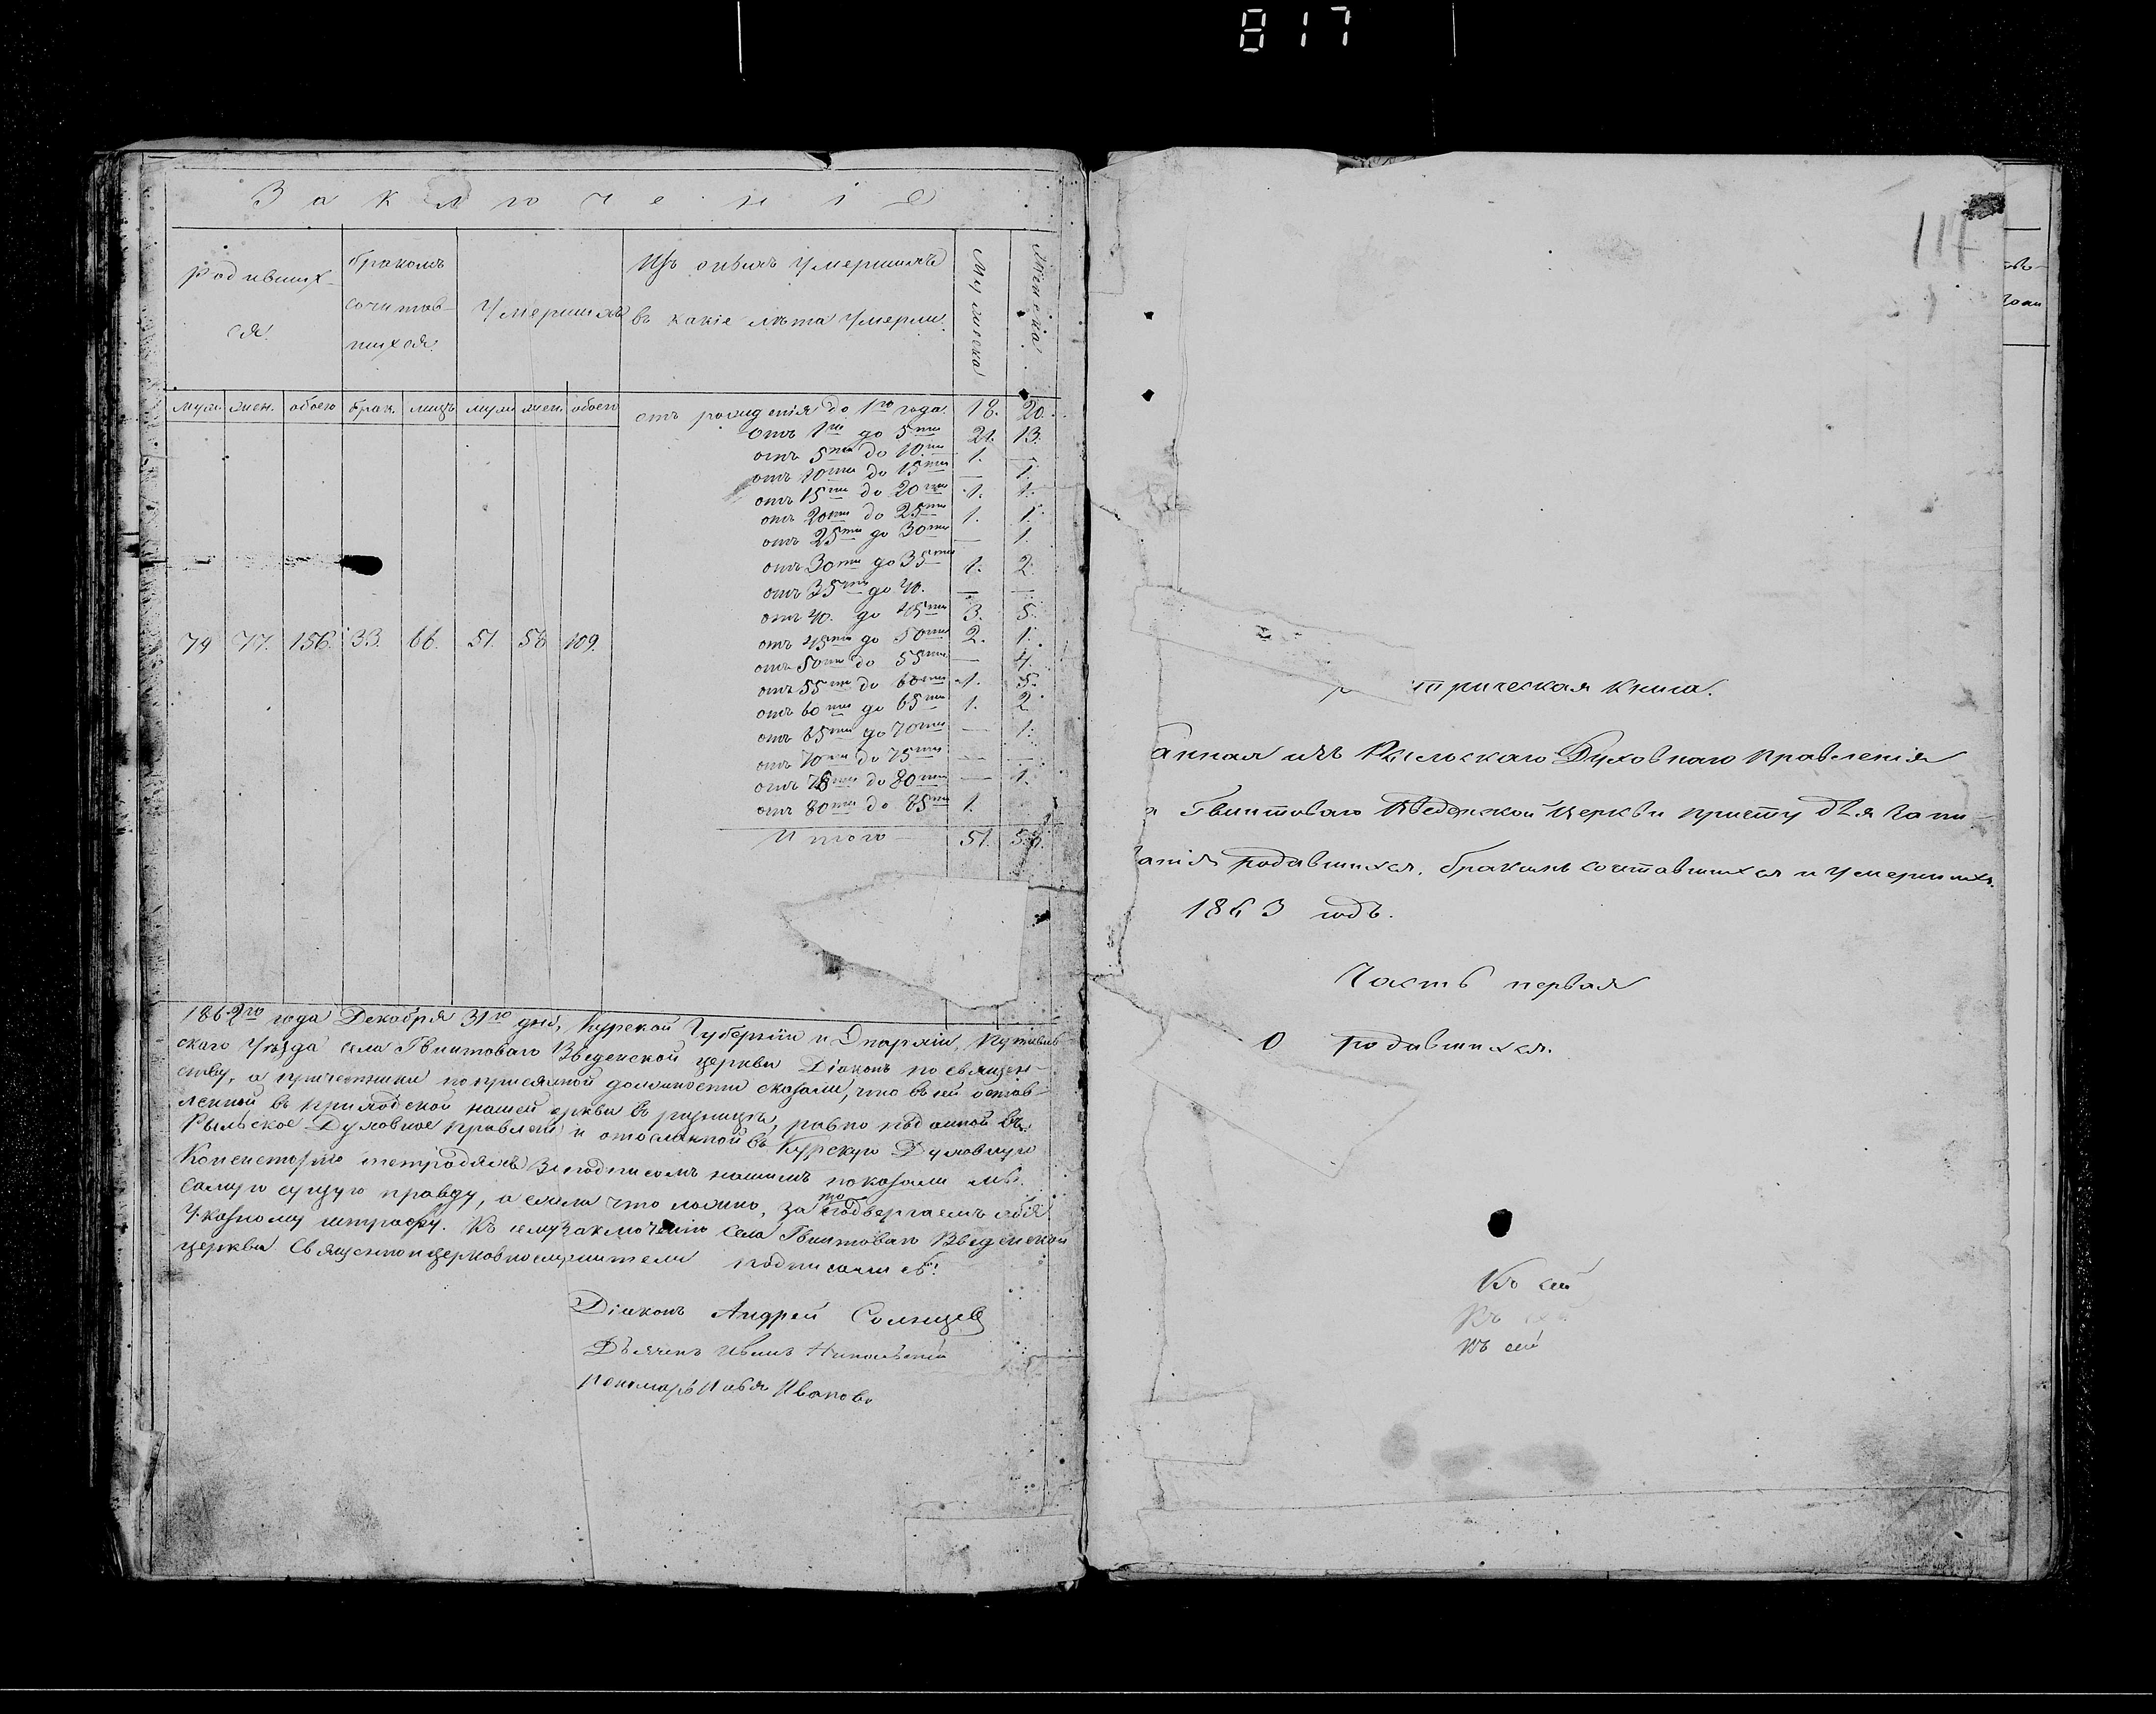 817
Заключеніе
Родивших-
ся.
бракомъ
сочитав-
шихся.
Умершихъ
Изъ оныхъ умершихъ
въ какіе лѣта умерли.
Мужеска
Женска
муж. жен. обоего брак. лицъ муж. жен. обоего
отъ рожденія до 1го года. 18. 20.
отъ 1го до 5ти 21. 13.
отъ 5ти до 10ти 1. —
отъ 10ти до 15ти — 1.
отъ 15ти до 20ти 1. 1.
отъ 20ти до 25ти 1. 1.
отъ 25ти до 30ти — 1.
отъ 30ти до 35ти 1. 2.
отъ 35ти до 40. — —
отъ 40. до 45ти 3. 5.
79 77. 156. 33. 66. 51. 58 109.
отъ 45ти до 50ти 2. 1.
отъ 50ти до 55ти — 4.
отъ 55ти до 60ти 1. 5.
отъ 60ти до 65ти 1. 2
отъ 65ти до 70ти — 1.
отъ 70ти до 75ти — —
отъ 75ти до 80ти — 1.
отъ 80ти до 85ти 1.
Итого 51. 58.
1862го года Декабря 31го дня, Курской Губерніи и Епархіи, Путивль-
скаго Уѣзда села Гвинтоваго Введенской церкви Діаконъ по священ-
ству, а причетники по присяжной должности сказали, что въ сей остав-
ленной въ приходской нашей церкви въ ризницѣ, равно поданной въ
Рыльское Духовное Правленіе и отосланной въ Курскую Духовную
Консисторію тетрадяхъ за подписомъ нашимъ показали мы
самую сущую правду, а ежели что ложно, за то подвергаемъ себя
Указному штрафу. Къ сему заключенію села Гвинтоваго Введенской
церкви Священноицерковнослужители подписались:
Діаконъ Андрей Солнцев
Дьячекъ Иванъ Никольскій
Пономарь Иванов
117
трическая книга.
анная изъ Рыльскаго Духовнаго Правленія
Гвинтоваго Введенской церкви причту для запи-
санія родившихся, бракомъ сочтавшихся и умершихъ.
1863 годъ.
Часть первая
О родившихся.
Къ сей
Къ
Къ сей